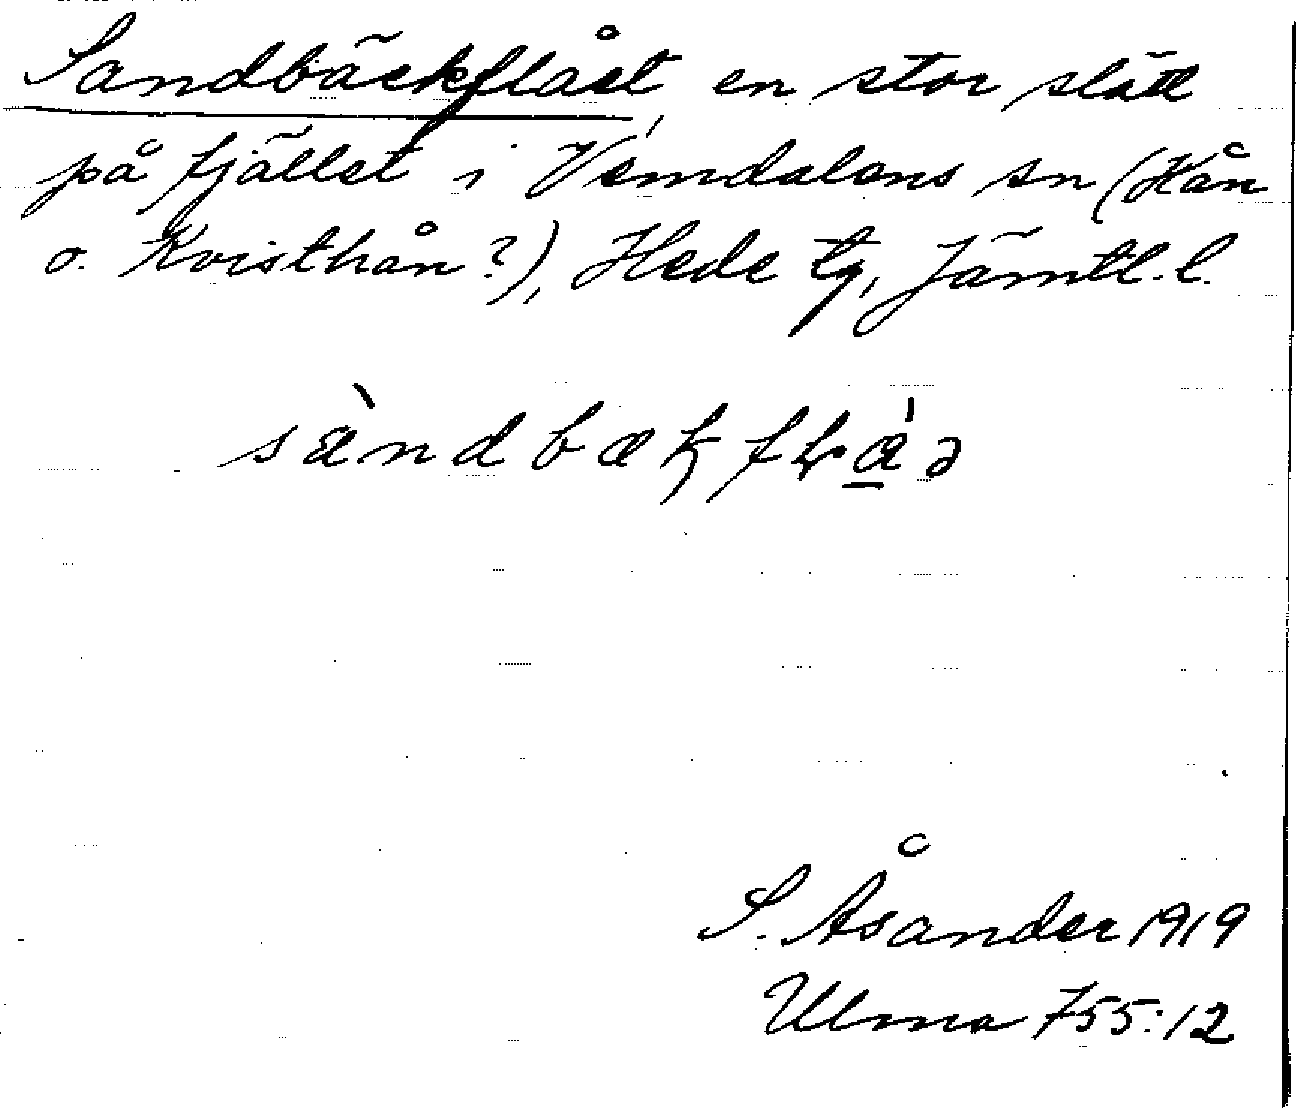 Sandbäckflået, en stor slätt
på fjället i Vemdalens sn (Hån
o. Kvisthån?), Hede tg, Jämtl. l.
sàndbækfɫà̲ə
S. Åsander 1919
Ulma 755:12